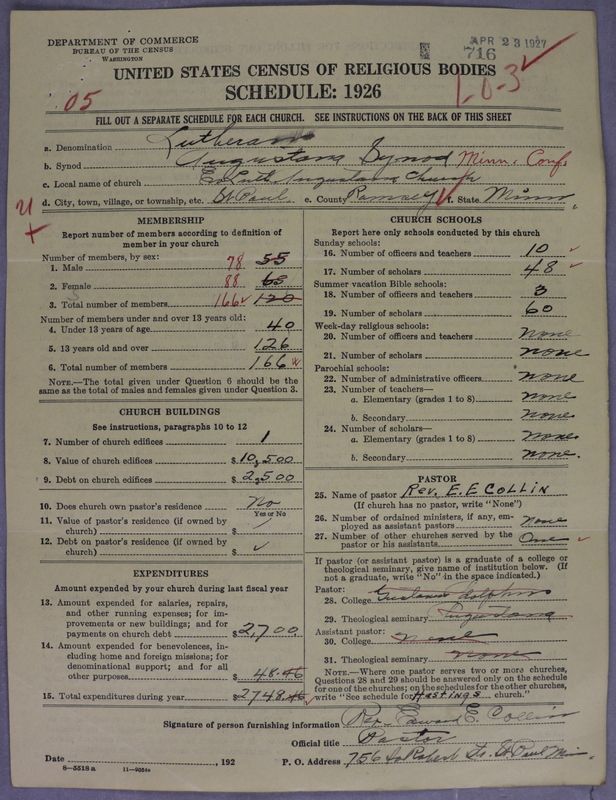 DEPARTMENT OF COMMERCE
BUREAU OF THE CENSUS
WASHINGTON
APR 23 1927
716
UNITED STATES CENSUS OF RELIGIOUS BODIES
SCHEDULE: 1926
05
1-0-3
FILL OUT A SEPARATE SCHEDULE FOR EACH CHURCH. SEE INSTRUCTIONS ON THE BACK OF THIS SHEET
a. Denomination Lutheran
b. Synod Augustana Synod Minn. Conf.
c. Local name of church Ev. Luth. Augustana Church
d. City, town, village, or township, etc. St. Paul e. County Ramsey f. State Minn.
MEMBERSHIP
Report number of members according to definition of member in your church
Number of members, by sex:
1. Male 78 55
2. Female 88 65
3. Total number of members 166 120
Number of members under and over 13 years old:
4. Under 13 years of age 40
5. 13 years old and over 126
6. Total number of members 166
NOTE.—The total given under Question 6 should be the same as the total of males and females given under Question 3.
CHURCH BUILDINGS
See instructions, paragraphs 10 to 12
7. Number of church edifices 1
8. Value of church edifices $10,500
9. Debt on church edifices $2,500
10. Does church own pastor's residence? No
Yes or No
11. Value of pastor's residence (if owned by church) $
12. Debt on pastor's residence (if owned by church) $
EXPENDITURES
Amount expended by your church during last fiscal year
13. Amount expended for salaries, repairs, and other running expenses; for improvements or new buildings; and for payments on church debt $2,700
14. Amount expended for benevolences, including home and foreign missions; for denominational support; and for all other purposes $48.46
15. Total expenditures during year $2748.46
CHURCH SCHOOLS
Report here only schools conducted by this church
Sunday schools:
16. Number of officers and teachers 10
17. Number of scholars 48
Summer vacation Bible schools:
18. Number of officers and teachers 3
19. Number of scholars 60
Week-day religious schools:
20. Number of officers and teachers none
21. Number of scholars none
Parochial schools:
22. Number of administrative officers none
23. Number of teachers—
a. Elementary (grades 1 to 8) none
b. Secondary none
24. Number of scholars—
a. Elementary (grades 1 to 8) none
b. Secondary none.
PASTOR
25. Name of pastor Rev. E. E COLLIN
(If church has no pastor, write "None")
26. Number of ordained ministers, if any, employed as assistant pastors none
27. Number of other churches served by the pastor or his assistants One
If pastor (or assistant pastor) is a graduate of a college or theological seminary, give name of institution below. (If not a graduate, write "No" in the space indicated.)
Pastor:
28. College Gustavus Adolphus
29. Theological seminary Augustana
Assistant pastor:
30. College None
31. Theological seminary none
NOTE.—Where one pastor serves two or more churches, Questions 28 and 29 should be answered only on the schedule for one of the churches; on the schedules for the other churches, write "See schedule for HASTINGS church."
Signature of person furnishing information Rev. Edward E. Collin
Official title Pastor
Date , 192 P. O. Address 756 So Robert St. St Paul Minn.
8—5518 a 11—9054